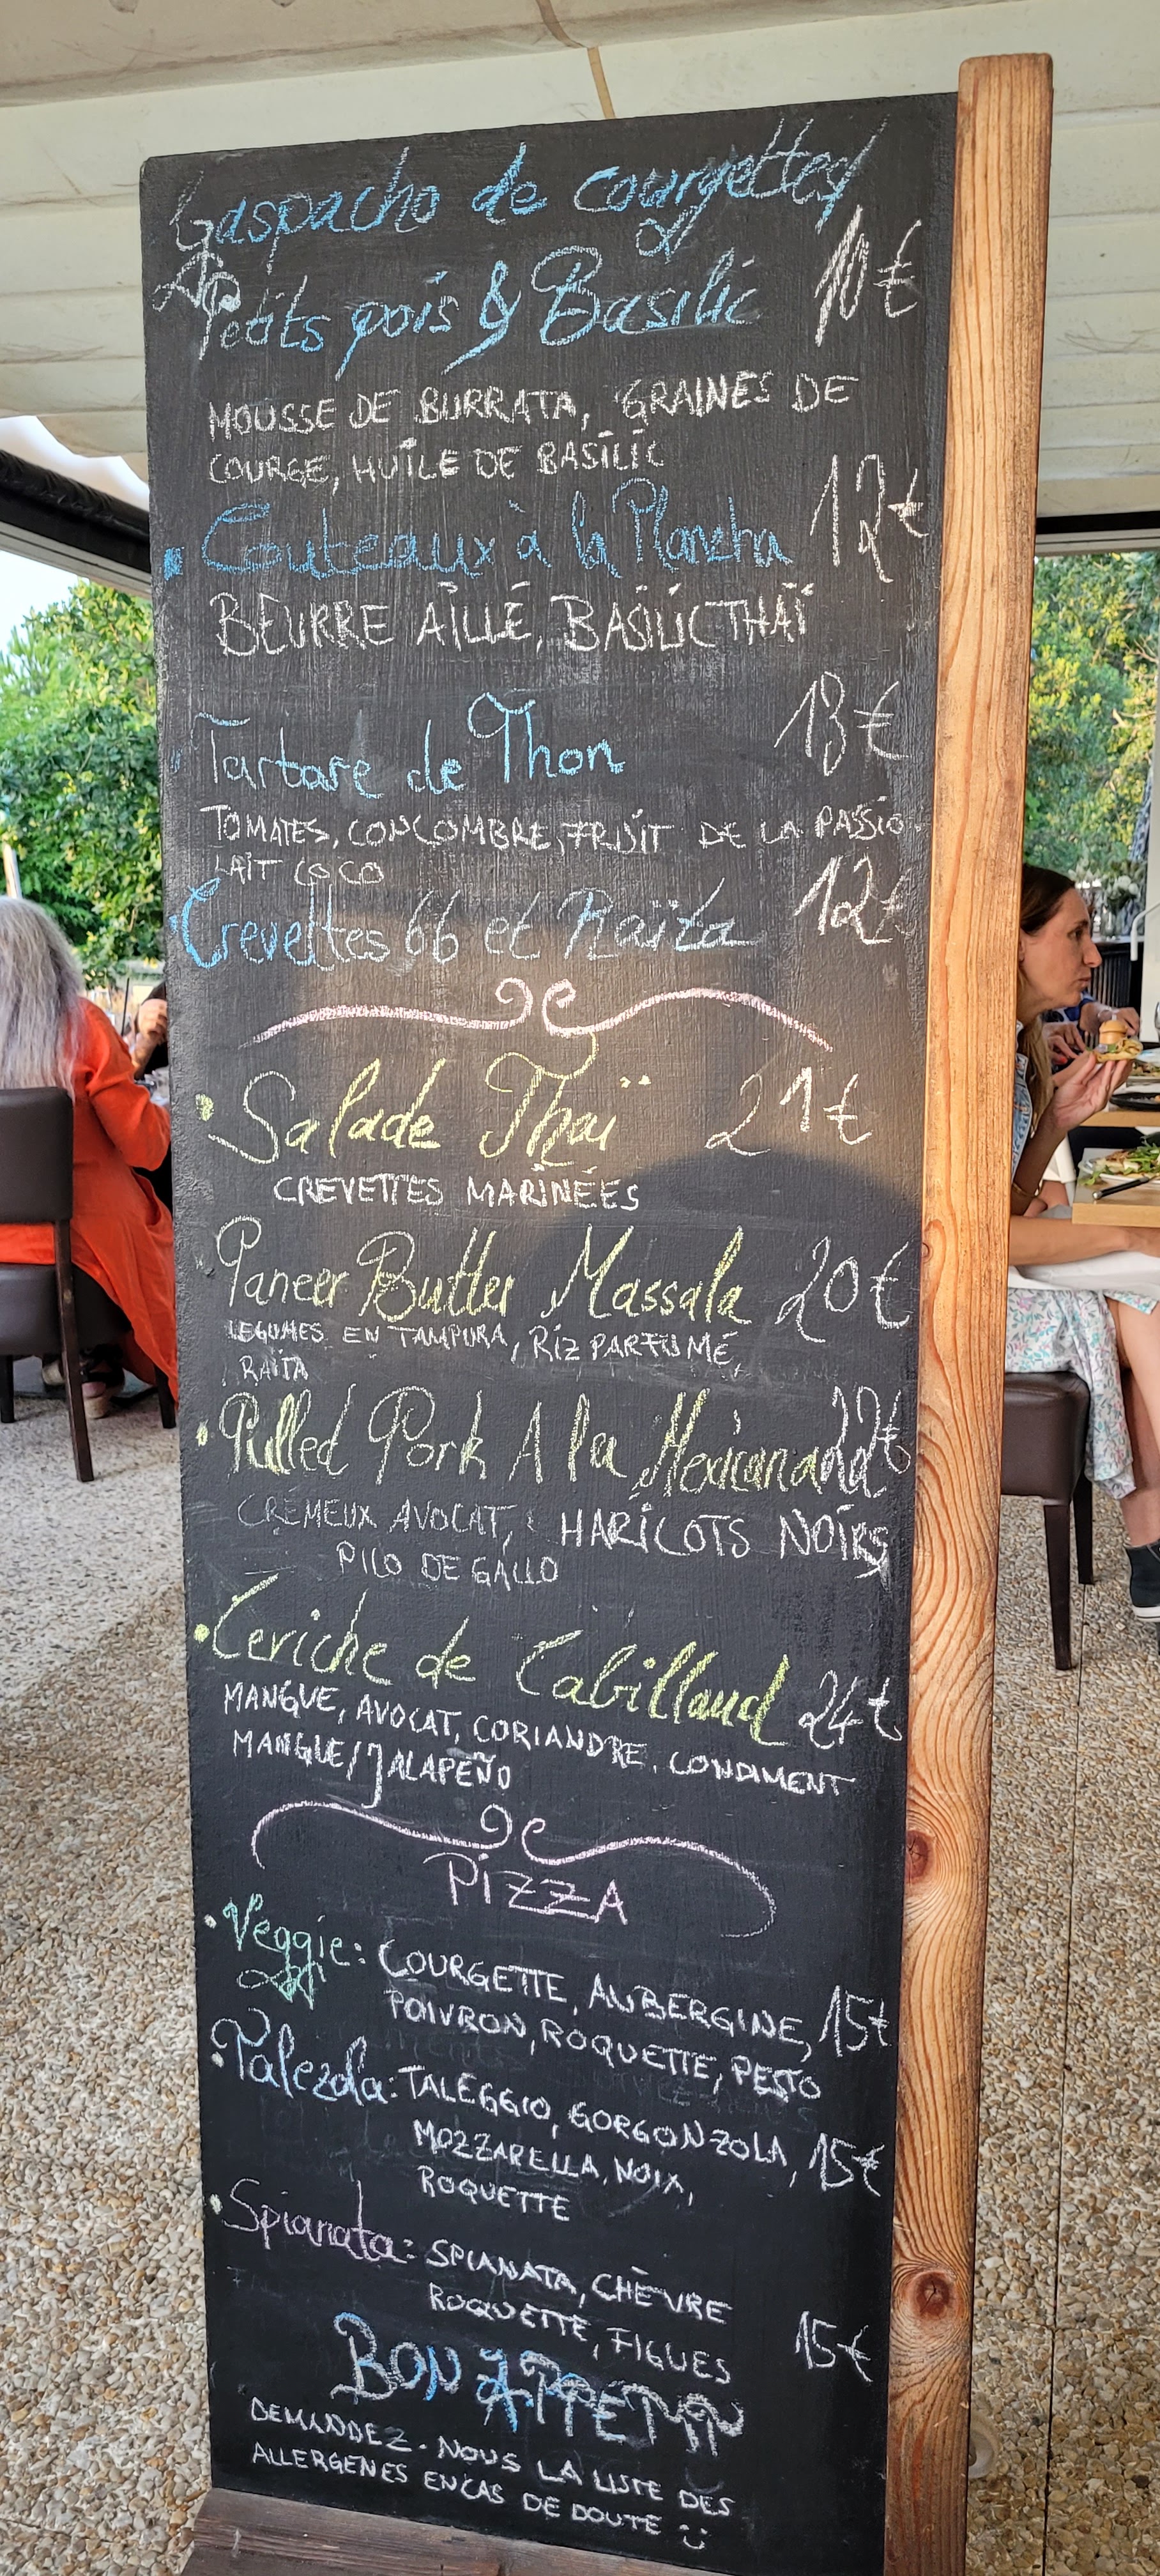 Gaspacho de courgettes
Petits pois & Basilic 10€
MOUSSE DE BURRATA, GRAINES DE
COURGE, HUILE DE BASILIC
Couteaux à la Plancha 12€
BEURRE AILLÉ, BASILIC THAÏ
Tartare de Thon 13€
TOMATES, CONCOMBRE, FRUIT DE LA PASSIO
LAIT COCO
Crevettes 66 et Raïta 12€
Salade Thaï 21€
CREVETTES MARINÉES
Paneer Butter Massala 20€
LEGUMES EN TAMPURA, RIZ PARFUMÉ,
RAÏTA
Pulled Pork A la Mexicana 22€
CRÉMEUX AVOCAT, HARICOTS NOIRS
PILO DE GALLO
Ceviche de Cabillaud 24€
MANGUE, AVOCAT, CORIANDRE, CONDIMENT
MANGUE/JALAPEÑO
PIZZA
Veggie: COURGETTE, AUBERGINE,
POIVRON, ROQUETTE, PESTO 15€
Palezola: TALEGGIO, GORGONZOLA,
MOZZARELLA, NOIX, 15€
ROQUETTE
Spianata: SPIANATA, CHÈVRE
ROQUETTE, FIGUES 15€
BON APPETIT
DEMANDEZ-NOUS LA LISTE DES
ALLERGENES EN CAS DE DOUTE